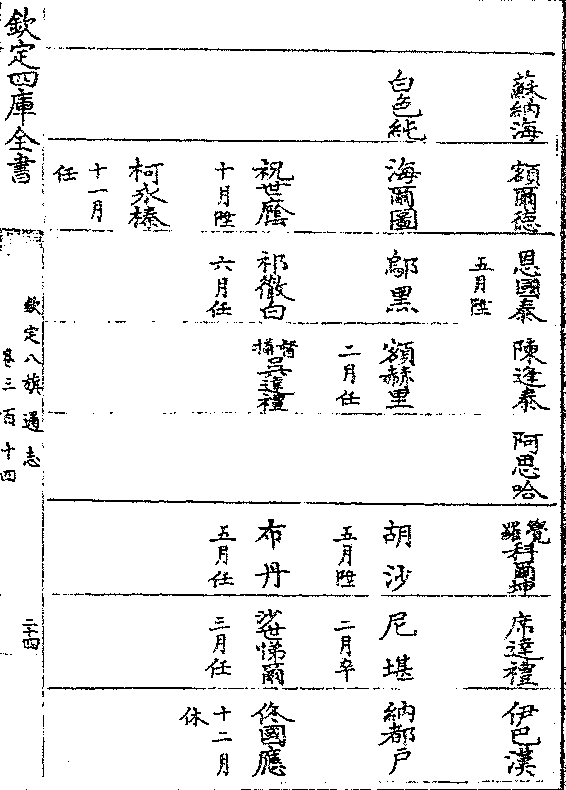 蘇納海
額爾德
恩國泰
五月陞
陳逢泰
阿思哈
覺羅科爾坤
席達禮
伊巴漢
白色純
海爾圖
鄔黑
額赫里
二月任
胡沙
五月陞
尼堪
二月卒
納都戶
祝世廕
十月陞
祁徹白
六月任
督捕吳達禮
布丹
五月任
沙世悌爾
三月任
佟國應
十二月
休
柯永榛
十一月
任
欽定四庫全書
欽定八旗通志
卷三百十四
二十四